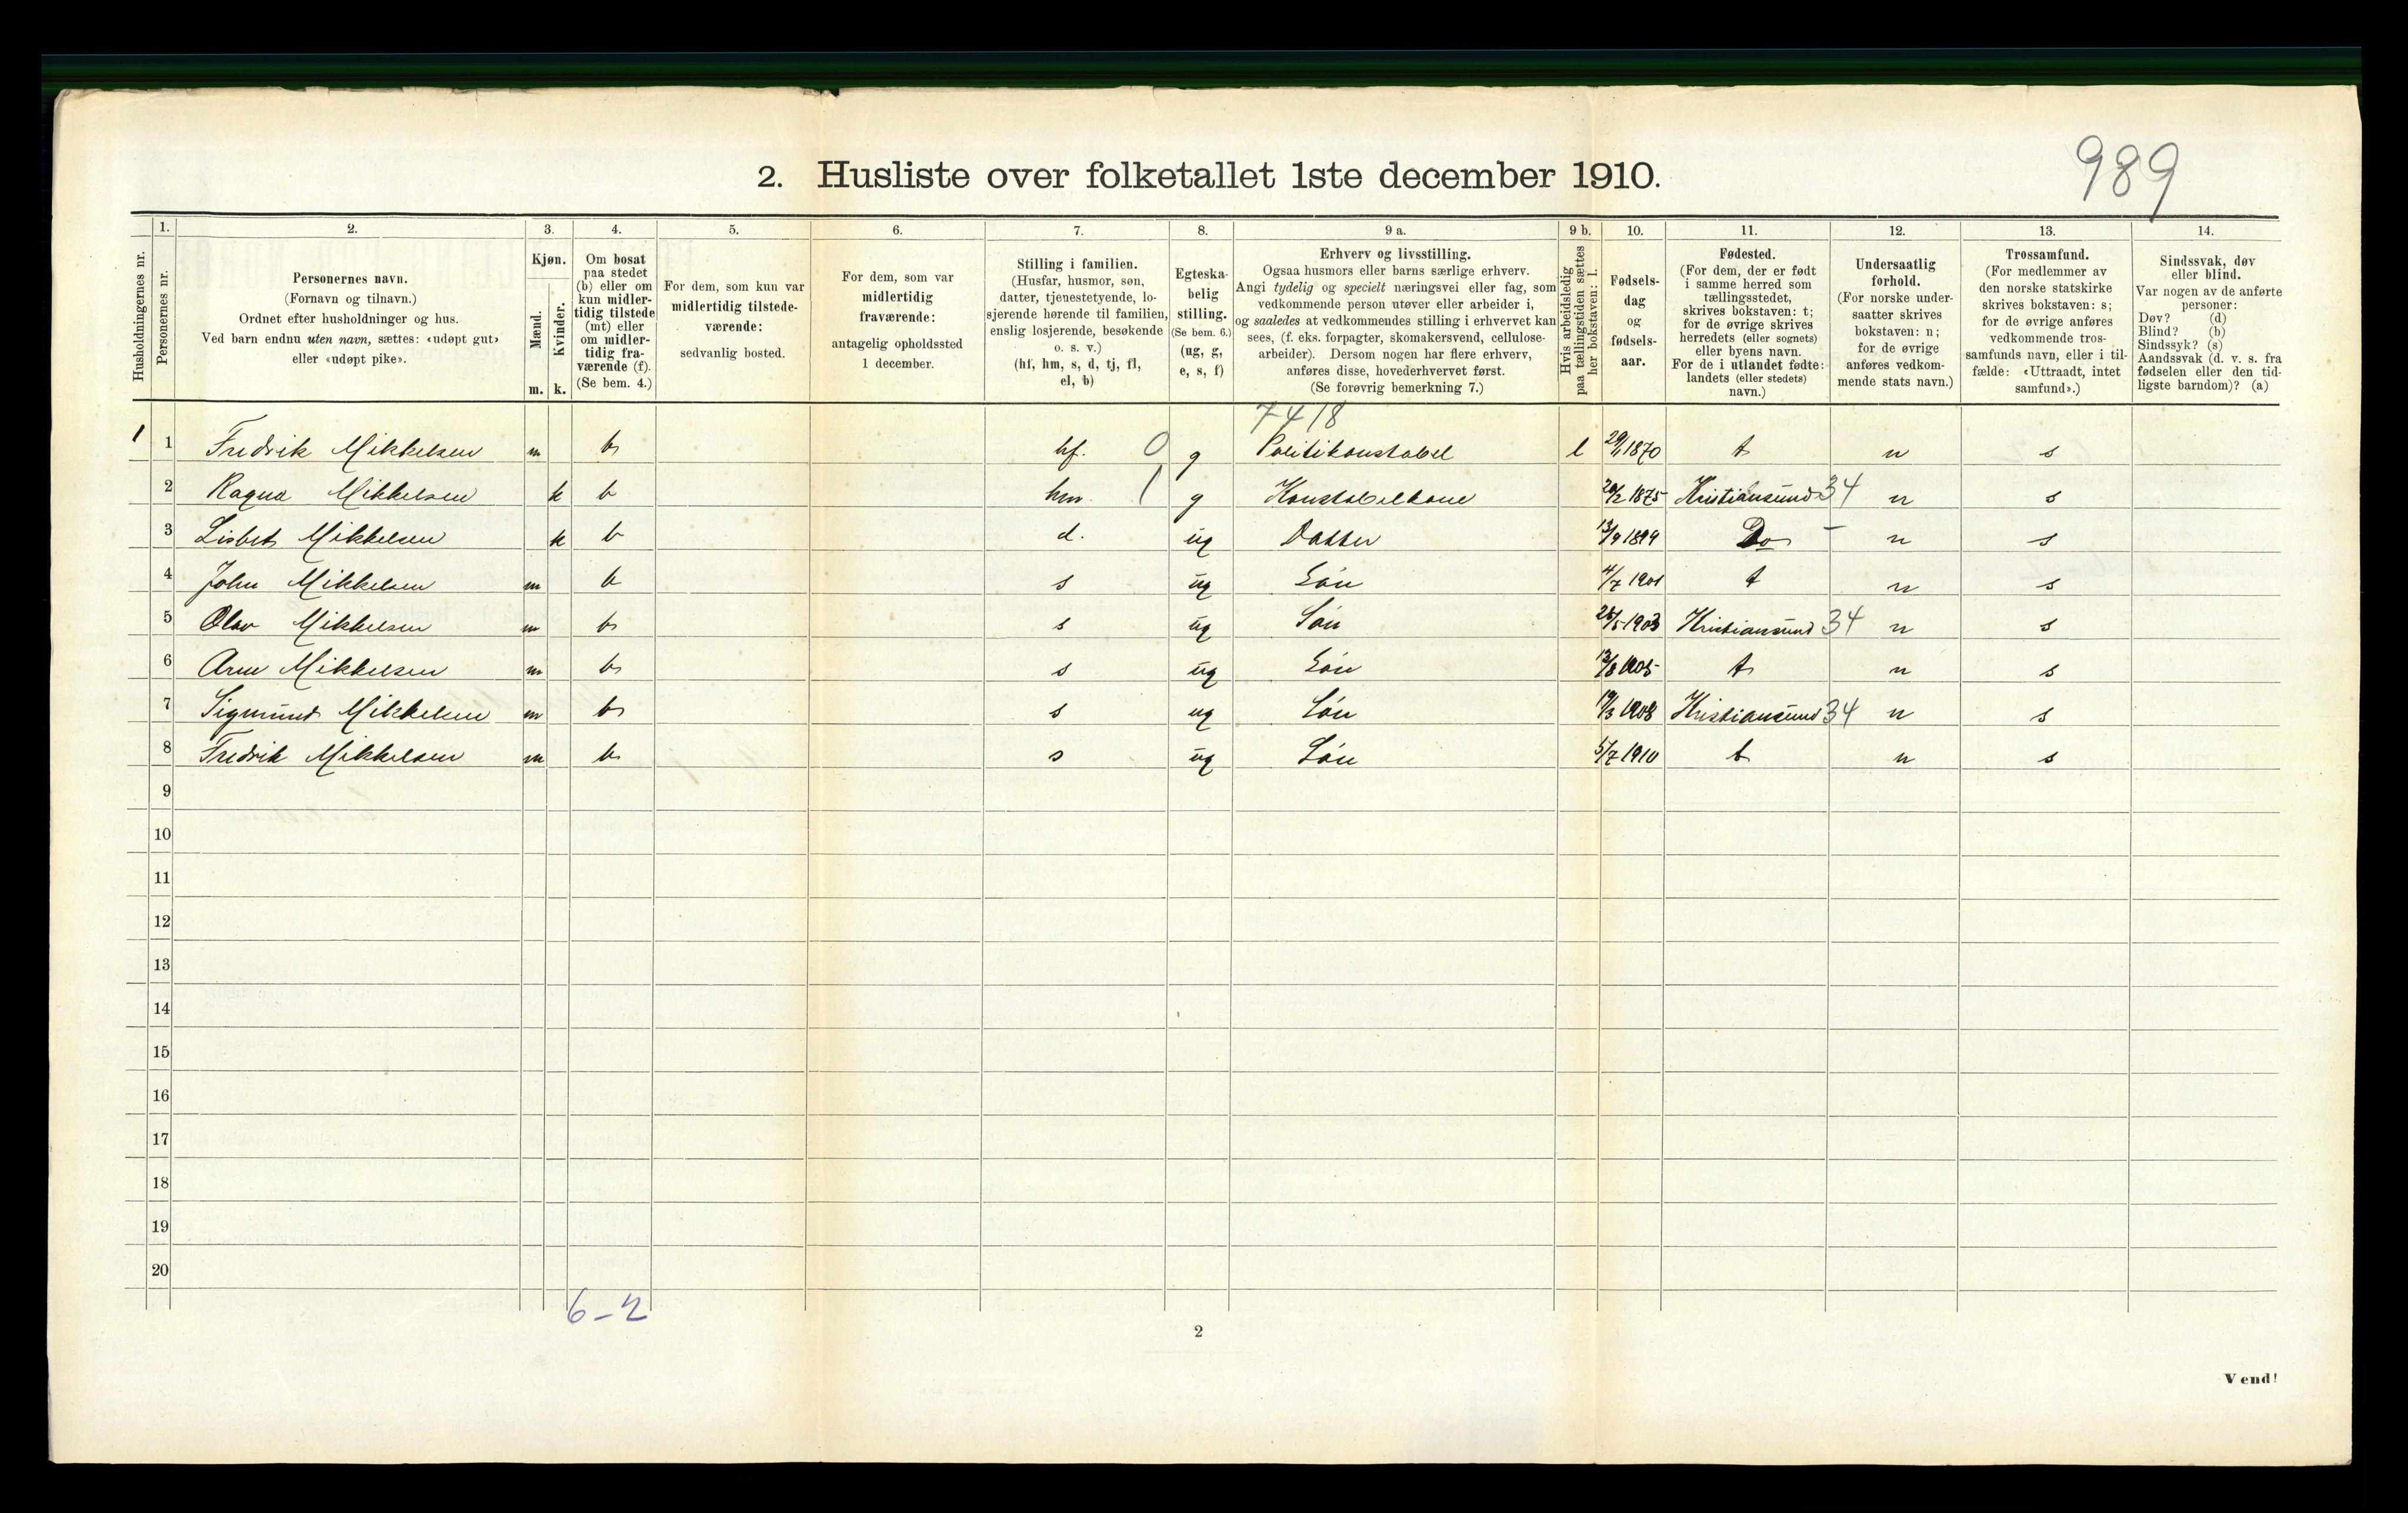 989
2. Husliste over folketallet 1ste december 1910.
Husholdningernes nr.
1.
Personernes nr.
2.
Personernes navn.
(Fornavn og tilnavn.)
Ordnet efter husholdninger og hus.
Ved barn endnu uten navn, sættes: «udøpt gut»
eller «udøpt pike».
3.
Kjøn.
Mænd.
Kvinder.
m. k.
4.
Om bosat
paa stedet
(b) eller om
kun midler-
tidig tilstede
(mt) eller
om midler-
tidig fra-
værende (f).
(Se bem. 4.)
5.
For dem, som kun var
midlertidig tilstede-
værende:
sedvanlig bosted.
6.
For dem, som var
midlertidig
fraværende:
antagelig opholdssted
1 december.
7.
Stilling i familien.
(Husfar, husmor, søn,
datter, tjenestetyende, lo-
sjerende hørende til familien,
enslig losjerende, besøkende
o. s. v.)
(hf, hm, s, d, tj, fl,
el, b)
8.
Egteska-
belig
stilling.
(Se bem. 6.)
(ug, g,
e, s, f)
9 a.
Erhverv og livsstilling.
Ogsaa husmors eller barns særlige erhverv.
Angi tydelig og specielt næringsvei eller fag, som
vedkommende person utøver eller arbeider i,
og saaledes at vedkommendes stilling i erhvervet kan
sees, (f. eks. forpagter, skomakersvend, cellulose-
arbeider). Dersom nogen har flere erhverv,
anføres disse, hovederhvervet først.
(Se forøvrig bemerkning 7.)
9 b.
Hvis arbeidsledig
paa tællingstiden sættes
her bokstaven: l.
10.
Fødsels-
dag
og
fødsels-
aar.
11.
Fødested.
(For dem, der er født
i samme herred som
tællingsstedet,
skrives bokstaven: t;
for de øvrige skrives
herredets (eller sognets)
eller byens navn.
For de i utlandet fødte:
landets (eller stedets)
navn.)
12.
Undersaatlig
forhold.
(For norske under-
saatter skrives
bokstaven: n;
for de øvrige
anføres vedkom-
mende stats navn.)
13.
Trossamfund.
(For medlemmer av
den norske statskirke
skrives bokstaven: s;
for de øvrige anføres
vedkommende tros-
samfunds navn, eller i til-
fælde: «Uttraadt, intet
samfund».)
14.
Sindssvak, døv
eller blind.
Var nogen av de anførte
personer:
Døv? (d)
Blind? (b)
Sindssyk? (s)
Aandssvak (d. v. s. fra
fødselen eller den tid-
ligste barndom)? (a)
7418
1 1 Fredrik Mikkelsen m b hf. 0 g Politikonstabel l 29/1 1870 t n s
2 Ragna Mikkelsen k b hm. 1 g Konstabelkone 20/2 1875 Kristiansund 34 n s
3 Lisbet Mikkelsen k b d. ug Datter 13/9 1899 Do - n s
4 John Mikkelsen m b s ug Søn 4/7 1901 t n s
5 Olav Mikkelsen m b s ug Søn 1903 Kristiansund 34 n s
6 Arne Mikkelsen m b s ug Søn 13/8 1905 t n s
7 Sigmund Mikkelsen m b s ug Søn 19/3 1908 Kristiansund 34 n s
8 Fredrik Mikkelsen m b s ug Søn 5/7 1910 t n s
9
10
11
12
13
14
15
16
17
18
19
20
6-2
2
Vend!